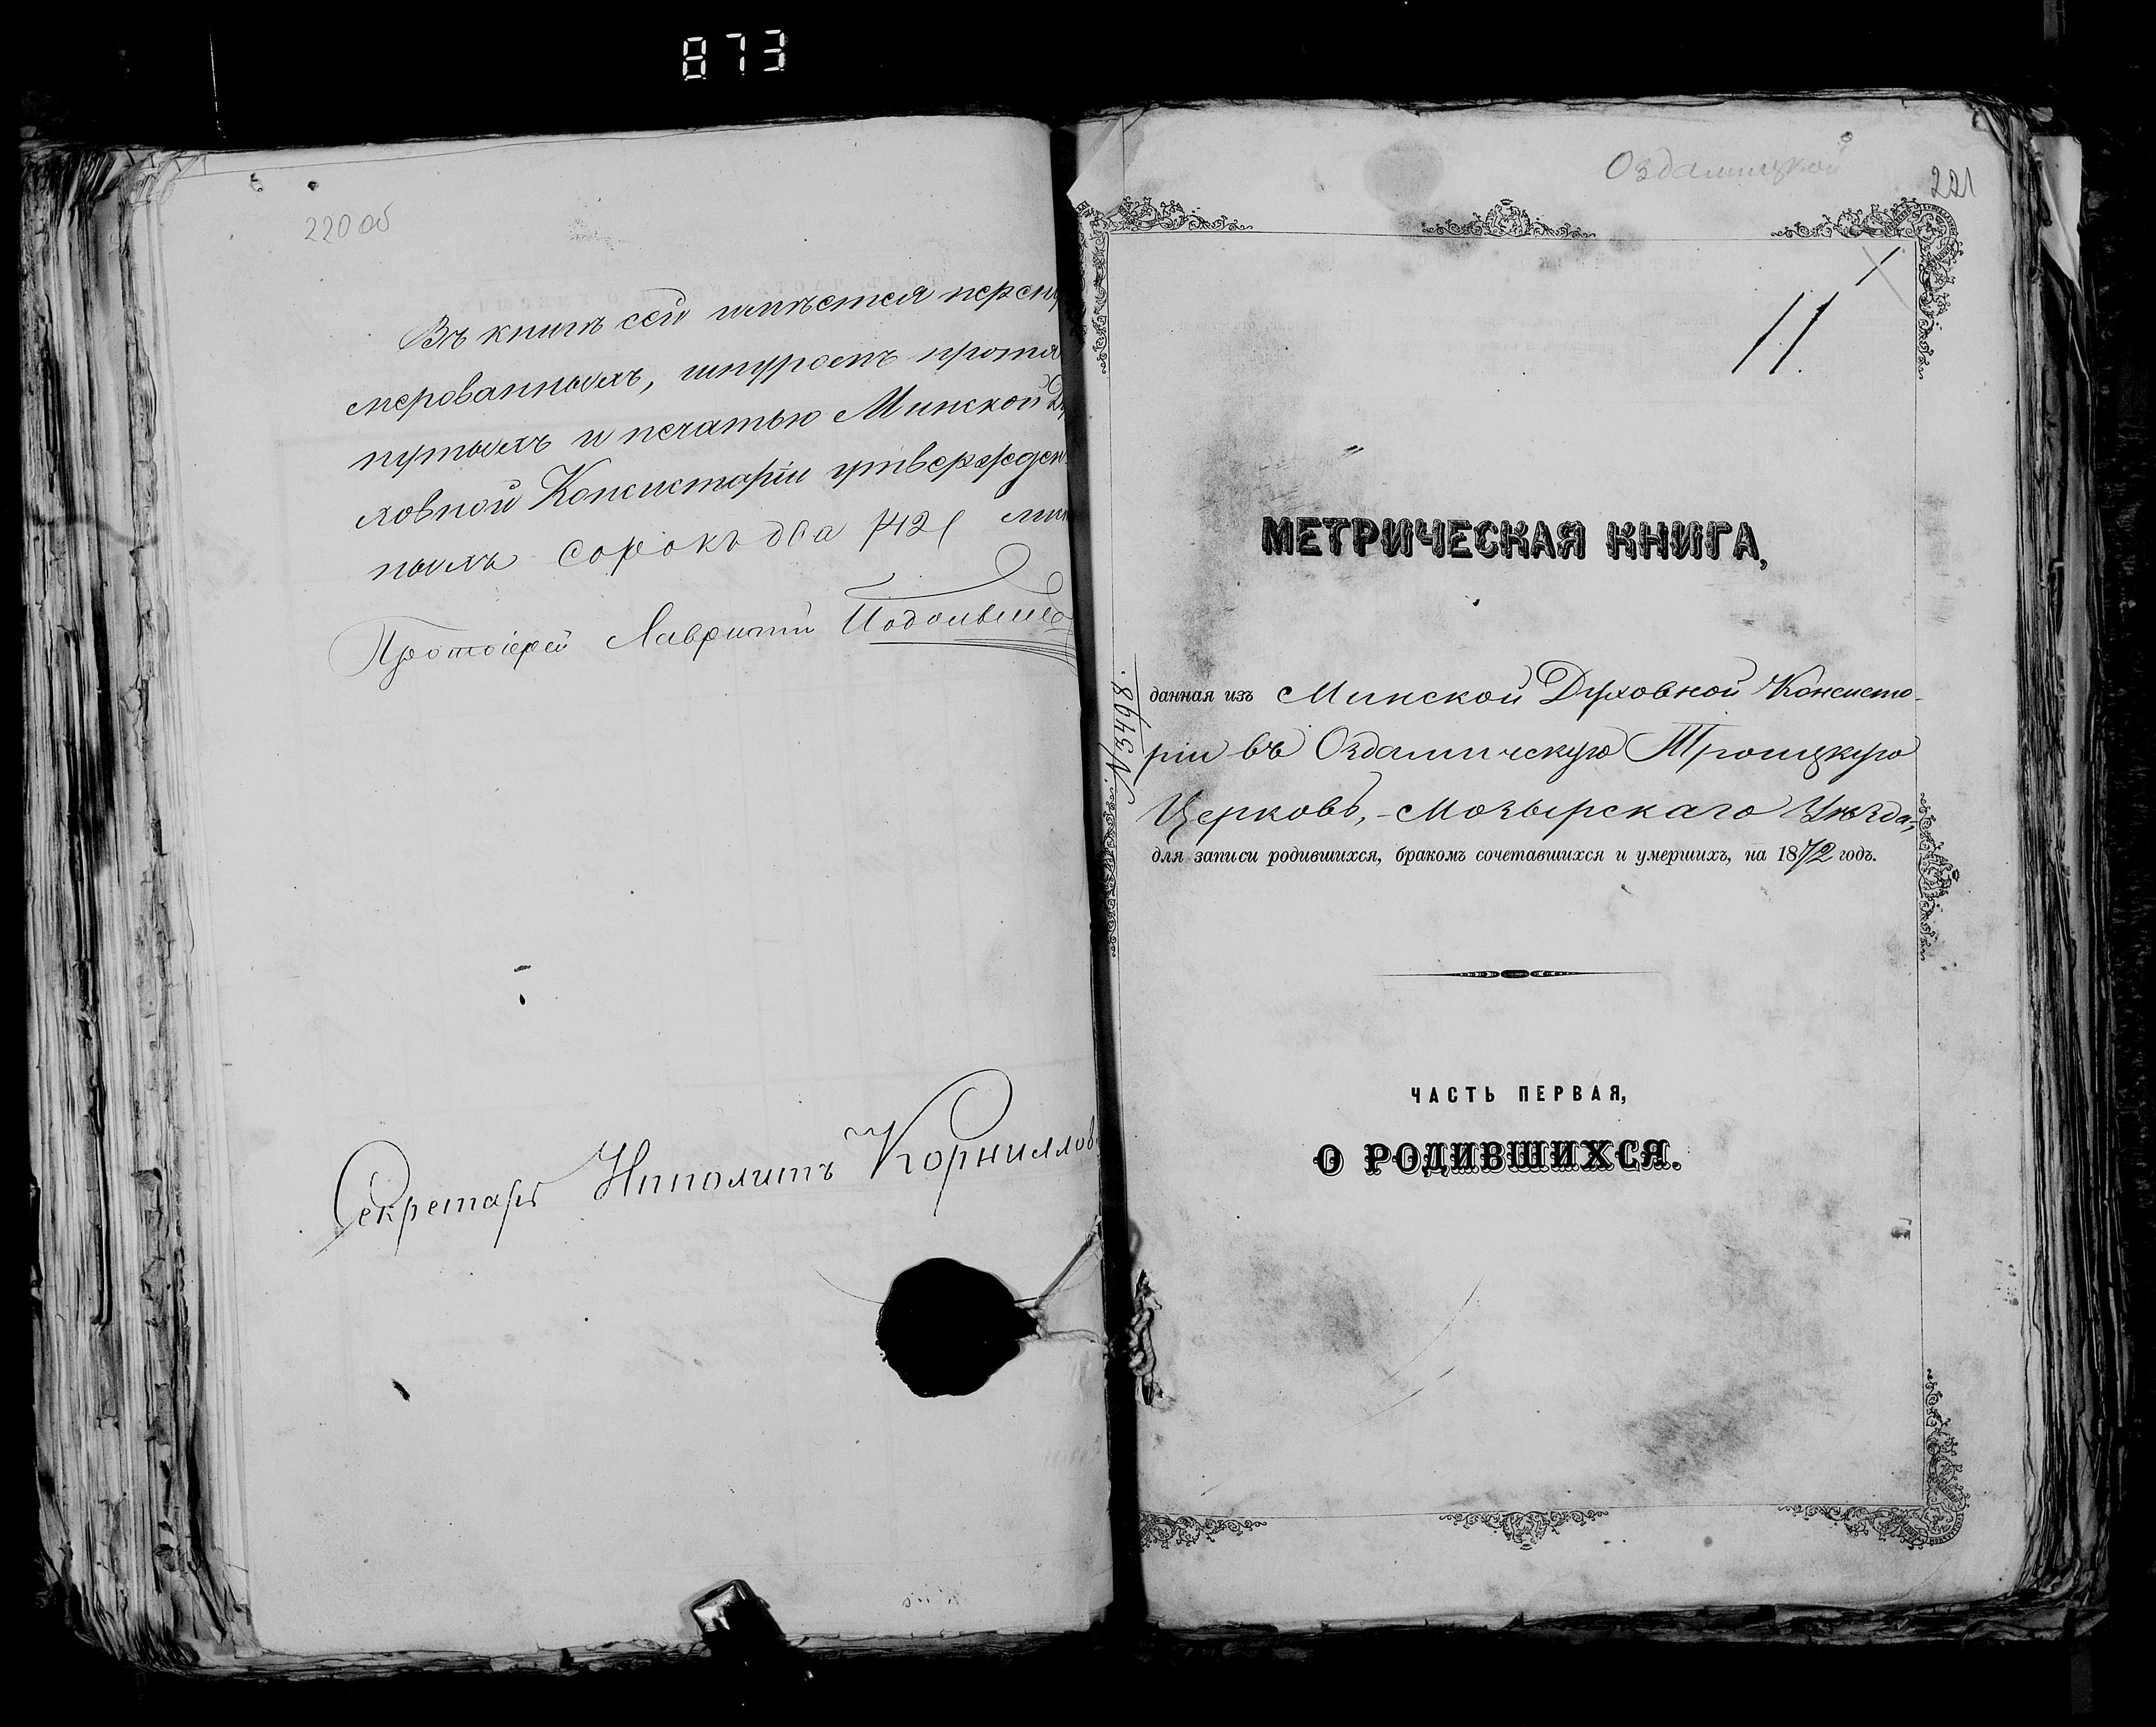 873
220 об
Въ книгѣ сей имѣется перену
мерованныхъ, шнуромъ протя
нутыхъ и печатью Минской Ду
ховной Консисторіи утвержден
ныхъ сорокъ два /42/ лис
Протоіерей Лаврентій
Секретарь Ипполитъ Корнилов
Оздамицкой
221
11
МЕТРИЧЕСКАЯ КНИГА,
N 3498.
данная изъ Минской Духовной Консисто-
ріи въ Оздамичскую Троицкую
Церковь, - Мозырскаго Уѣзда,
для записи родившихся, бракомъ сочетавшихся и умершихъ, на 1872 годъ.
ЧАСТЬ ПЕРВАЯ,
О РОДИВШИХСЯ.